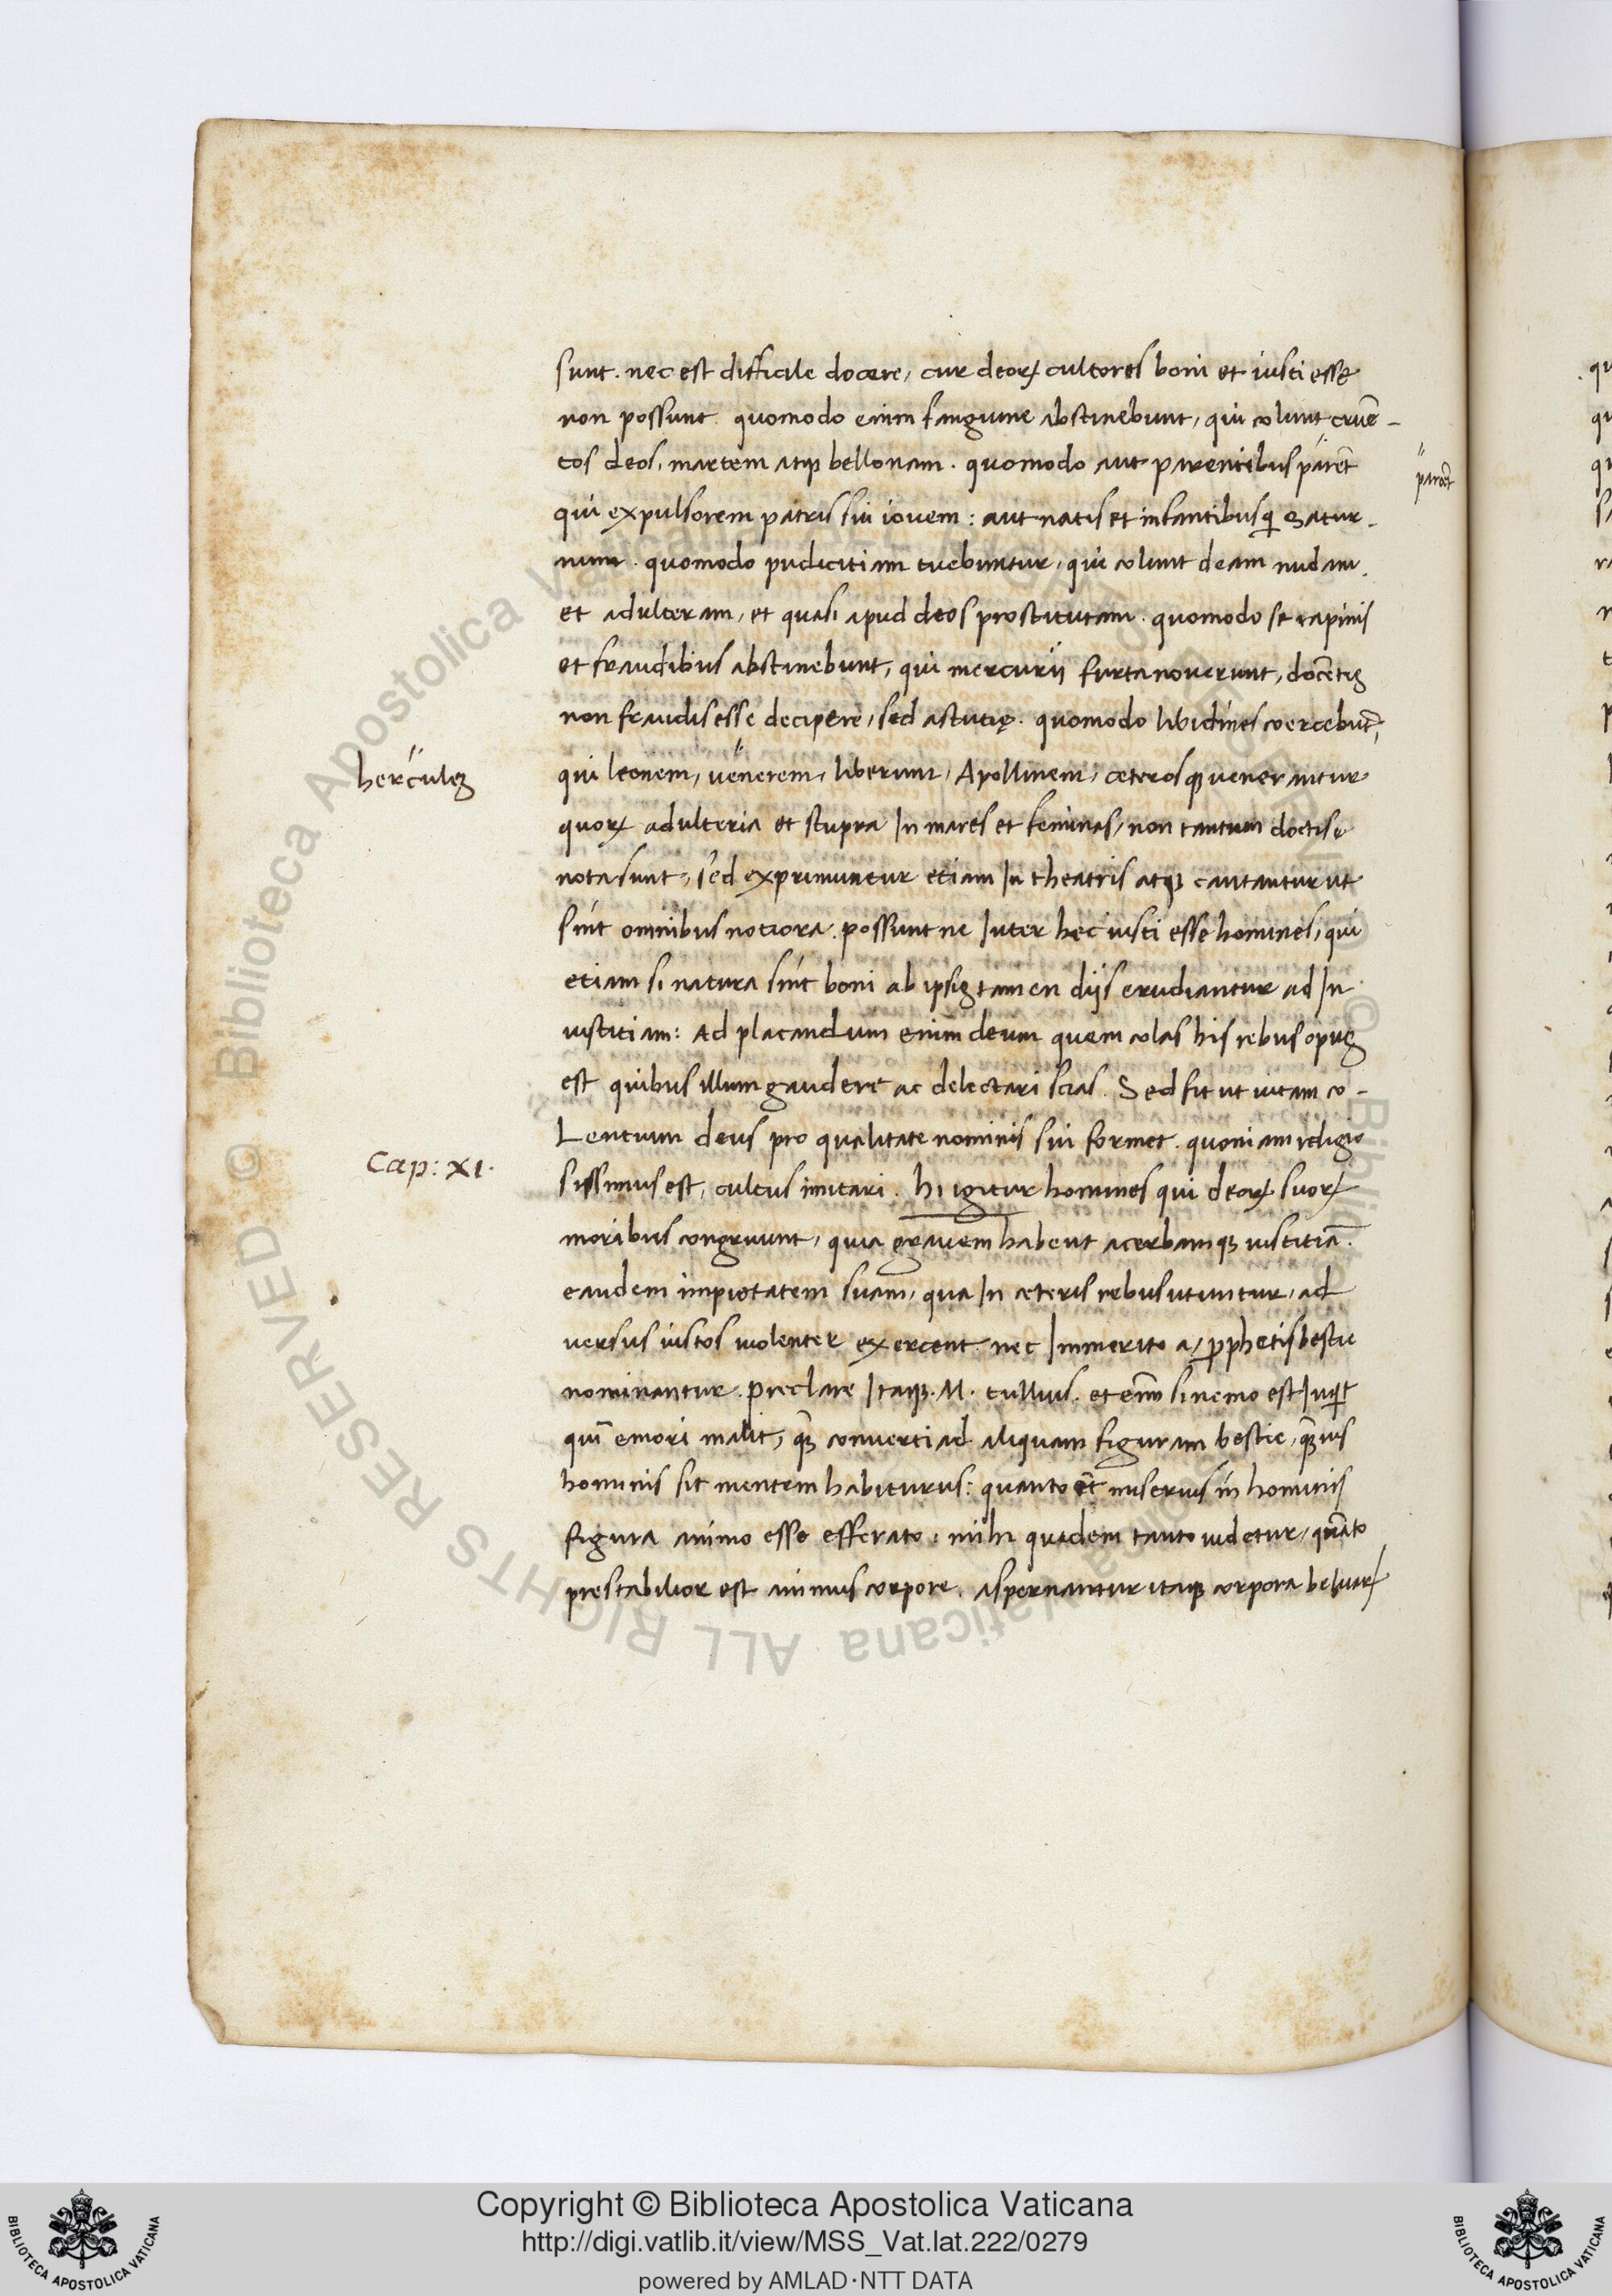 sunt. nec est difficile docere, cur deoꝝ cultores boni et iusti esse
non possunt. quomodo enim sanguine abstinebunt, qui colunt cruē-
tos deos, martem atqꝫ bellonam. quomodo aut parentibus parēt
parcēt
qui expulsorem patris sui iovem: aut natis et infantibus q̄ Satur-
num. quomodo pudicitiam tuebuntur, qui colunt deam nudam.
et adulteram, et quasi apud deos prostitutam. quomodo se rapinis
et fraudibus abstinebunt, qui mercurii furta noverunt, docētis
non fraudis esse decipere, sed astutię. quomodo libidines coercebūt,
hercules
qui leonem, venerem, liberum, Apollinem, ceterosqꝫ venerantur
quoꝝ adulteria et stupra In mares et feminas, non tantum doctis
nota sunt, sed exprimuntur etiam In theatris atqꝫ cantantur ut
sint omnibus notiora. possunt ne Inter hec iusti esse homines, qui
etiam si natura sint boni ab ipsis tamen diis erudiantur ad In
iustitiam: Ad placandum enim deum quem colas his rebus opus
est quibus illum gaudere ac delectari scias. Sed fit ut vitam co-
Lentium deus pro qualitate nominis sui formet. quoniam religio
Cap: XI.
sissimus est, cultus imitari. hi igitur homines qui deoꝝ suoꝝ
moribus congruunt, quia gravem habent acerbamqꝫ iustitiā.
eandem impietatem suam, qua In ceteris rebus utuntur, ad
versus iustos violenter exercent. nec Immerito a, ꝓphetis bestie
nominantur. preclare Itaqꝫ. M. tullius. et enī si nemo est Inqit
quī emori malit, qꝫ converti ad aliquam figuram bestie, qꝫvis
hominis sit mentem habiturus: quanto ēt miserius in hominis
figura animo esse efferato. mihi quidem tanto videtur, quāto
prestabilior est animus corpore. aspernantur itaqꝫ corpora beluaꝝ
Copyright © Biblioteca Apostolica Vaticana
http://digi.vatlib.it/view/MSS_Vat.lat.222/0279
powered by AMLAD·NTT DATA